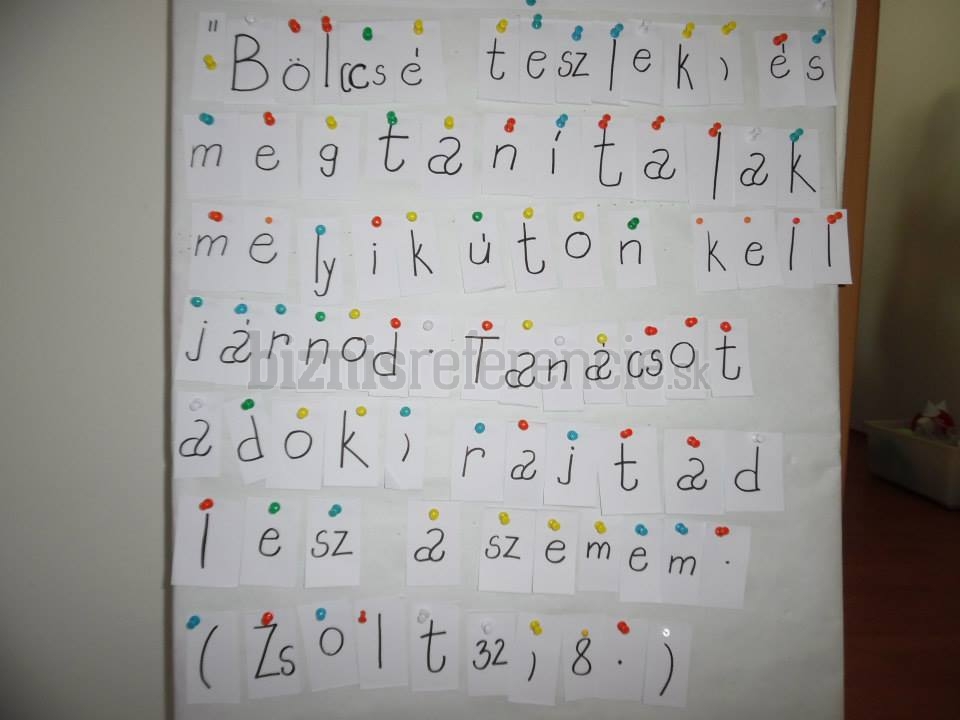 "Bölccsé teszlek, és
megtanítalak
melyikúton kell
járnod. Tanácsot
adok, rajtad
lesz a szemem.
(Zsolt 32, 8.)
biznisreferencie.sk